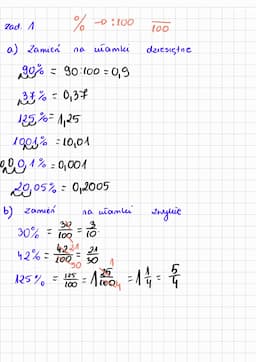 zad. 1 % → :100 /100
a) zamień na ułamki dziesiętne
90% = 90:100 = 0,9
37% = 0,37
125% = 1,25
1001% = 10,01
0,1% = 0,001
20,05% = 0,2005
b) zamień na ułamki zwykłe
30% = 30/100 = 3/10
42% = 42/100 21 50 = 21/50
125% = 125/100 = 1 25/100 1 4 = 1 1/4 = 5/4